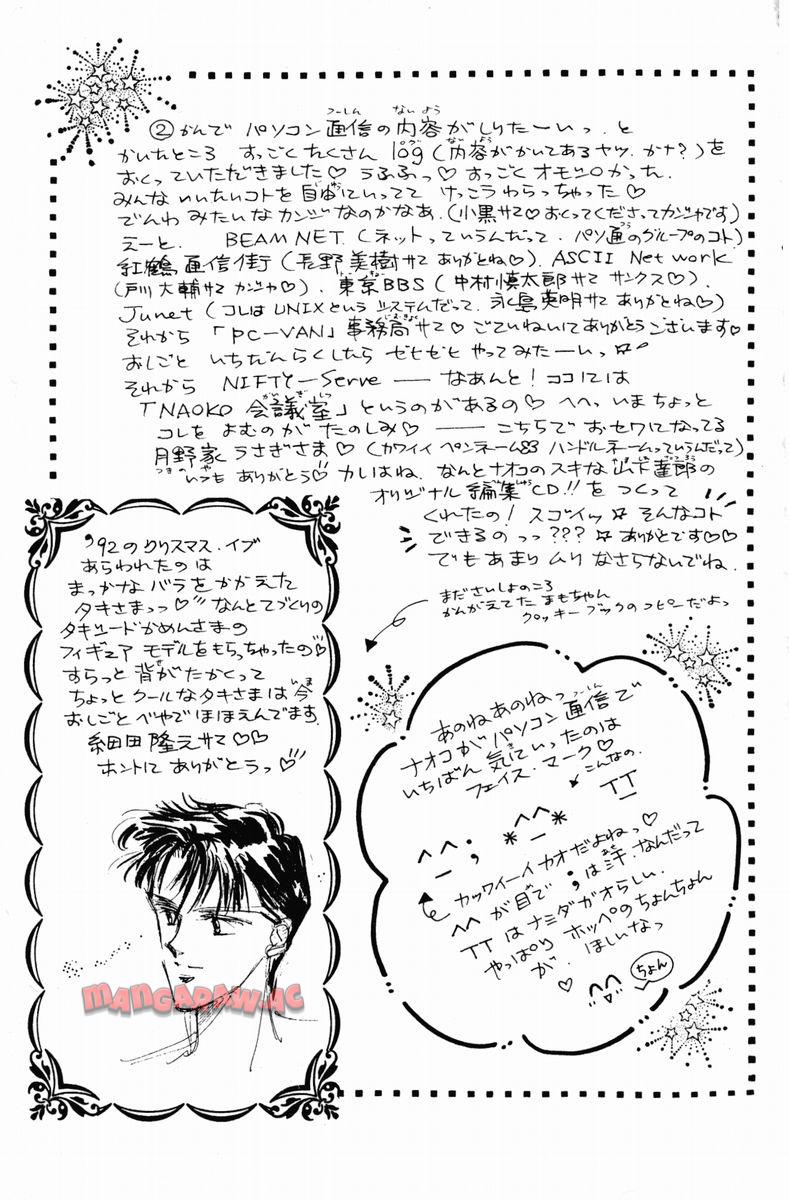 ②かんで パソコン通信の内容がしりたーいっ.と
つーしん ないよう
かいたところ すっごくたくさん log(内容がかいてあるヤツ.かナ?)を
ログ ないよう
おくっていただきました♡ うふふっ♡ すっごく オモシロかった.
みんな いいたいコトを自由にいってて けっこうわらっちゃった♡
じゆう
でんわ みたいな カンジなのかなあ.(小黒サマ♡おくってくださってカンシャです)
えーと. BEAM NET.(ネットっていうんだって. パソ通のグループのコト)
つう
紅鶴通信街(長野美樹サマ ありがとね♡). ASCII Net work
(戸川大輔サマ カンシャ♡). 東京BBS(中村慎太郎サマ サンクス♡).
Junet(コレはUNIXという システムだって. 永島英明サマ ありがとね♡)
それから 「PC-VAN」事務局サマ♡ ごていねいにありがとうございます♡
じむきょく
おしごと いちだんらくしたら ゼヒゼヒ やってみたーいっ☆
それから NIFTY-Serve ── なあんと! ココには
「NAOKO 会議室」というのがあるの♡ へへっ いまちょっと
かいぎしつ
コレをよむのが たのしみ♡ ── こちらで おセワになってる
月野家うさぎさま♡(カワイイ ペンネーム ハンドルネームっていうんだって)
つきのや
いつも ありがとう♡ カレはね. なんとナオコのスキな 山下達郎の
オリジナル 編集CD!! を つくって
くれたの! スゴイッ☆ そんなコト
できるのっっ??? ☆ ありがとです♡♡
でもあまり ムリ なさらないでね.
まださいしょのころ
かんがえてた まもちゃん
クロッキーブックのコピーだよっ
'92のクリスマス.イブ
あらわれたのは
まっかな バラをかかえた
タキさまっっ♡ なんとてづくりの
タキシードかめんさまの
フィギュア モデルをもらっちゃったの♡
すらっと 背がたかくって
せ
ちょっとクールなタキさまは 今
いま
おしごとべやでほほえんでます.
細田隆元サマ♡♡
ホントに ありがとうっ♡
あのねあのねっ
ナオコがパソコン通信で
つーしん
いちばん気にいったのは
き
フェイス・マーク♡
こんなの.
TT
^_^; *^_^*
カッワイーイ カオだよねっ♡
^^が目で ;は汗.なんだって
あせ
TTはナミダガオらしい.
やっぱり ホッペのちょんちょん
が. ほしいなっ
♡
ちょん
MANGARAW.AC